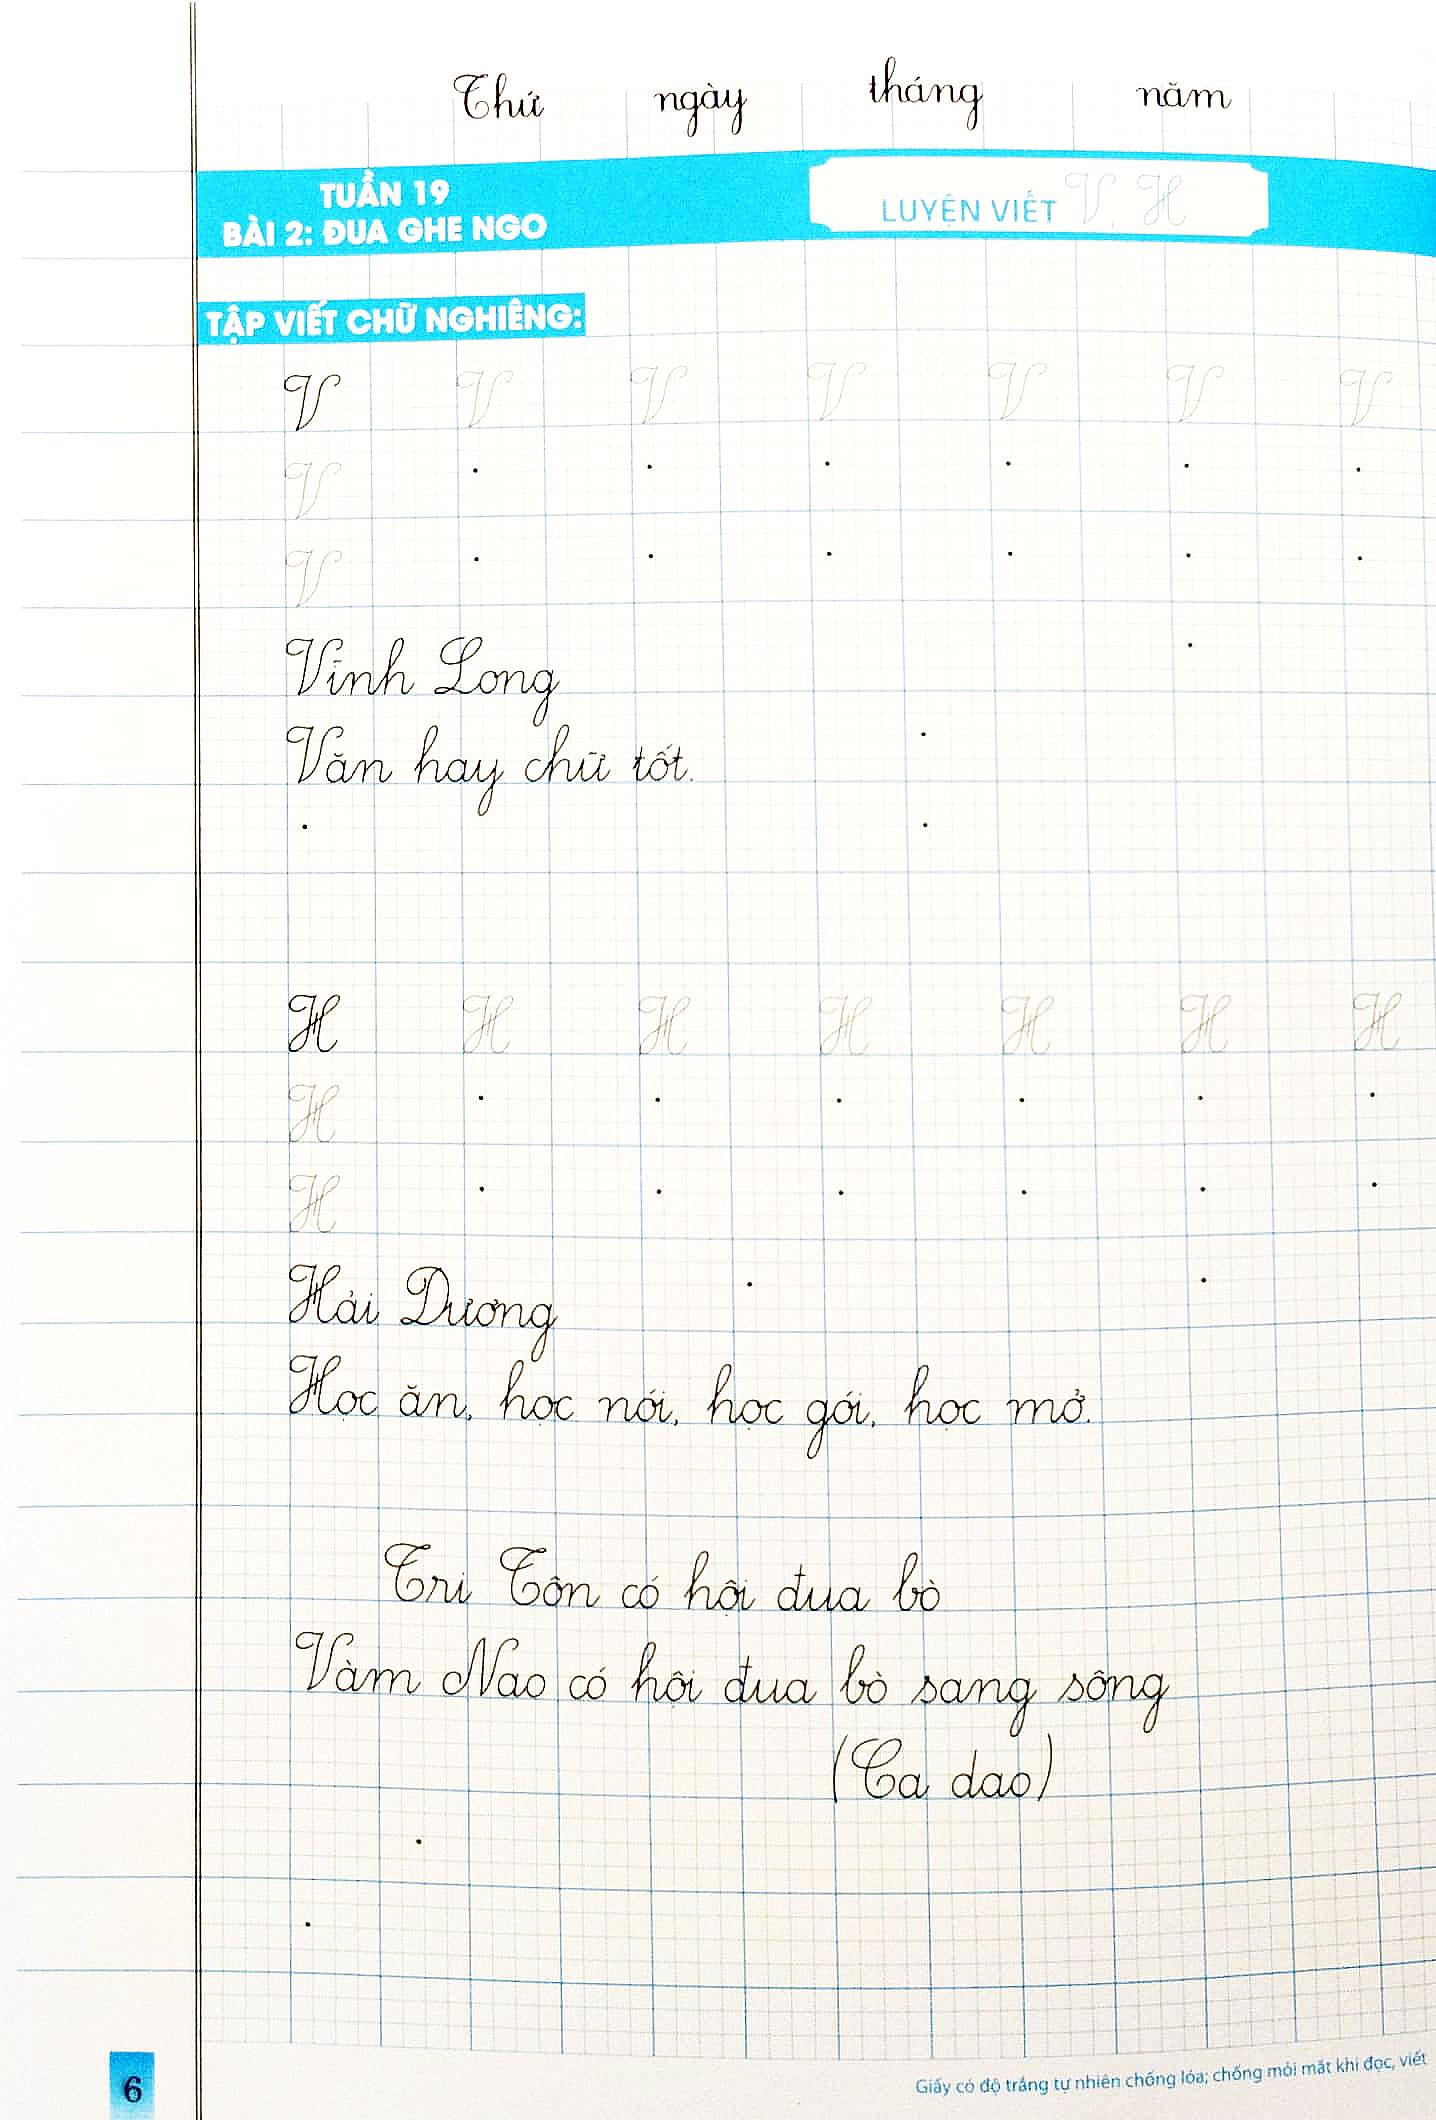 Thứ ngày tháng năm
TUẦN 19
BÀI 2: ĐUA GHE NGO
LUYỆN VIẾT V, H
TẬP VIẾT CHỮ NGHIÊNG:
V V V V V V V
V
V
Vĩnh Long
Văn hay chữ tốt.
H H H H H H H
H
H
Hải Dương
Học ăn, học nói, học gói, học mở.
Tri Tôn có hội đua bò
Vàm Nao có hội đua bò sang sông
(Ca dao)
6
Giấy có độ trắng tự nhiên chống lóa; chống mỏi mắt khi đọc, viết